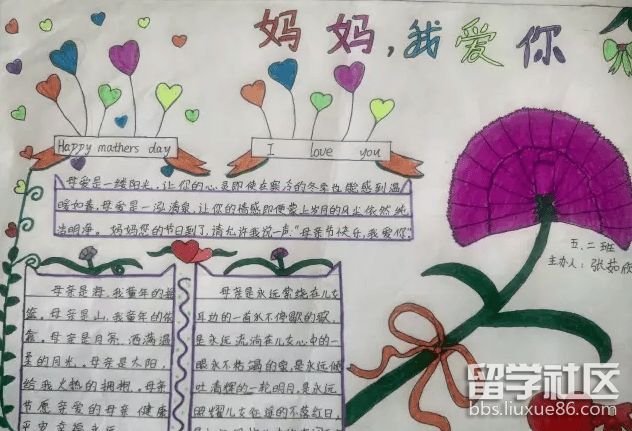 妈妈,我爱你
Happy mathers day
I love you
母爱是一缕阳光,让你的心灵即使在寒冷的冬季也能感到温
暖如春,母爱是一泓清泉,让你的情感即使蒙上岁月的风尘依然纯
洁明净。妈妈您的节日到了,请允许我说一声:“母亲节快乐,我爱你”
五.二班
主办人:张茹欣
母亲是海,我童年的摇
篮,母亲是山,我童年的依
靠,母亲是月亮,洒满温
柔的月光。母亲是太阳,
给我火热的拥抱。母亲
节愿亲爱的母亲健康
平安幸福永远
母亲是永远萦绕在儿女
耳边的一首永不停歇的歌,
是永远流淌在儿女心中的一
眼永不枯竭的泉,是永远倾
吐清辉的一轮明月,是永远
照耀儿女征途的不落红日,
留学社区
bbs.liuxue86.com